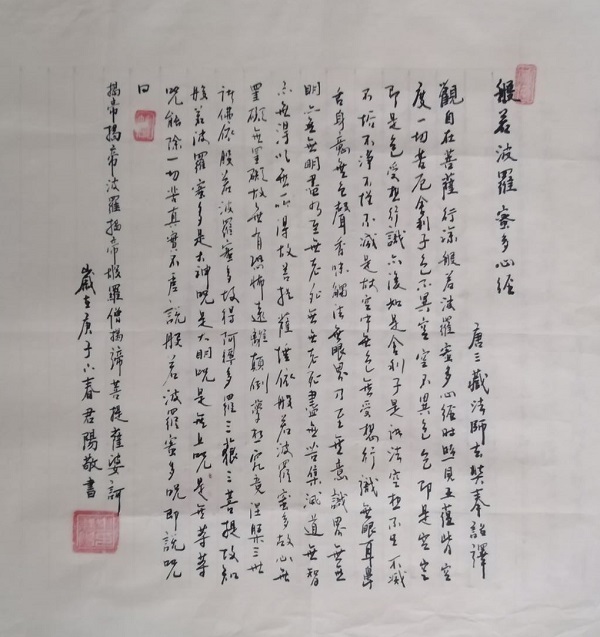 般若波羅蜜多心經
唐三藏法師玄奘奉詔譯
觀自在菩薩行深般若波羅蜜多心經時照見五蘊皆空
度一切苦厄舍利子色不異空空不異色色即是空空
即是色受想行識亦復如是舍利子是諸法空相不生不滅
不垢不淨不增不減是故空中無色無受想行識無眼耳鼻
舌身意無色聲香味觸法無眼界乃至無意識界無無
明亦無無明盡乃至無老死無無老死盡無苦集滅道無智
亦無得以無所得故菩提薩埵依般若波羅蜜多故心無
罣礙無罣礙故無有恐怖遠離顛倒夢想究竟涅槃三世
諸佛依般若波羅蜜多故得阿耨多羅三藐三菩提故知
般若波羅蜜多是大神呪是大明呪是無上呪是無等等
呪能除一切苦真實不虛說般若波羅蜜多呪即說呪
曰
揭帝揭帝波羅揭帝波羅僧揭諦菩提薩婆訶
歲在庚子小春君陽敬書